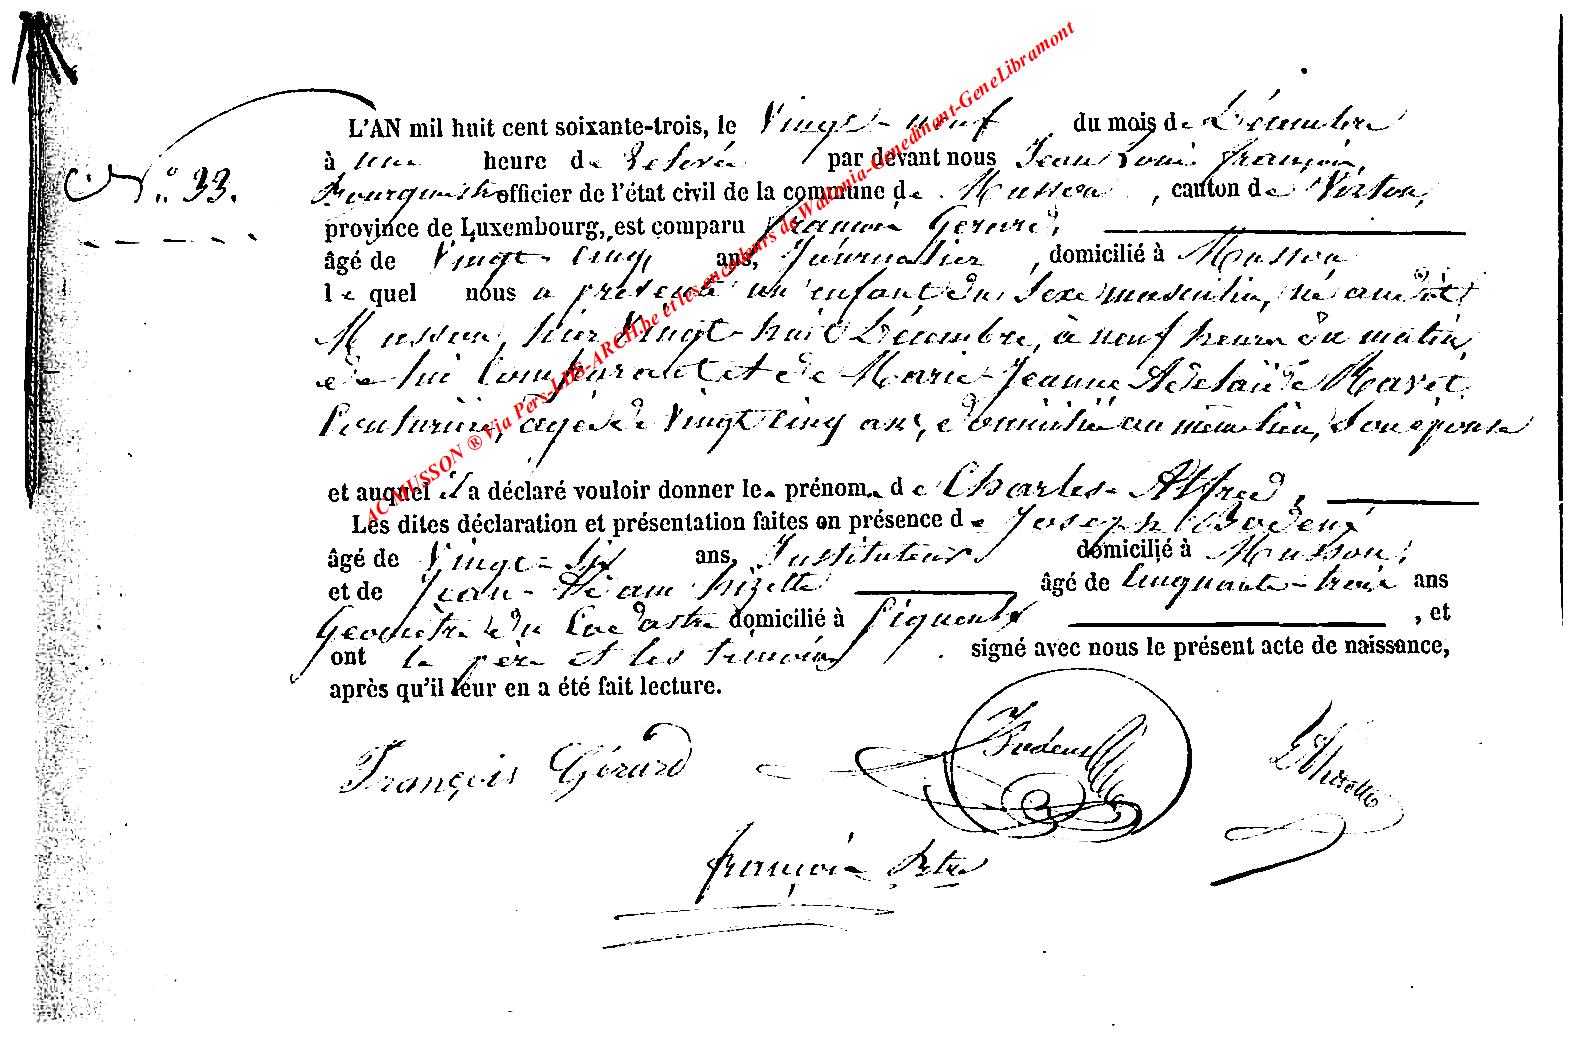 L'AN mil huit cent soixante-trois, le Vingt-neuf du mois de Décembre
N.° 33. à une heure de relevée par devant nous Jean Louis françois,
officier de l'état civil de la commune de Musson, canton de Virton,
province de Luxembourg, est comparu François Gérard,
âgé de Vingt-cinq ans, Journalier, domicilié à Musson
le quel nous a présenté un enfant du Sexe masculin, né audit
Musson, hier Vingt-huit Décembre, à neuf heures du matin,
de lui Comparant et de Marie-Jeanne Adelaïde Mavet,
Couturière, agée de Vingt cinq ans, domiciliée au même lieu, Son épouse
et auquel il a déclaré vouloir donner le prénom de Charles-Alfred,
Les dites déclaration et présentation faites en présence de Joseph Bodeux
âgé de Vingt-six ans, Instituteur domicilié à Musson,
et de Jean- âgé de Cinquante-trois ans
Géomètre du Cadastre domicilié à Signeulx, et
ont le père et les témoins signé avec nous le présent acte de naissance,
après qu'il leur en a été fait lecture.
François Gérard Bodeux
françois
AC MUSSON ® Via Pers-LDS-ARCH.be et les encodeurs de Wallonia-Genedinant-GeneLibramont